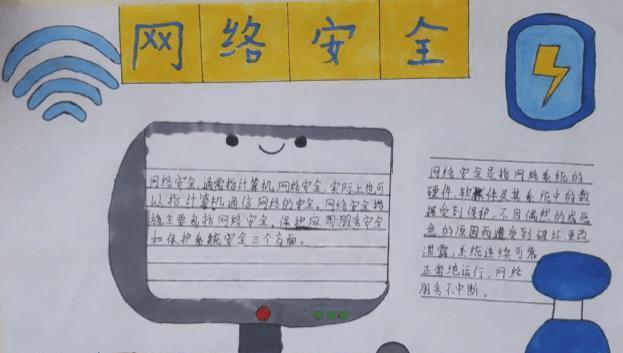 网络安全
网络安全,通常指计算机网络安全,实际上也可
以指计算机通信网络的安全,网络安全措
施主要包括网络安全,保护应用服务安全
和保护系统安全三个方面。
网络安全是指网络系统的
硬件,软件及其系统中的数
据受到保护,不因偶然的或恶
意的原因而遭受到破坏更改
泄露,系统连续可靠
正常地运行,网络
服务不中断。